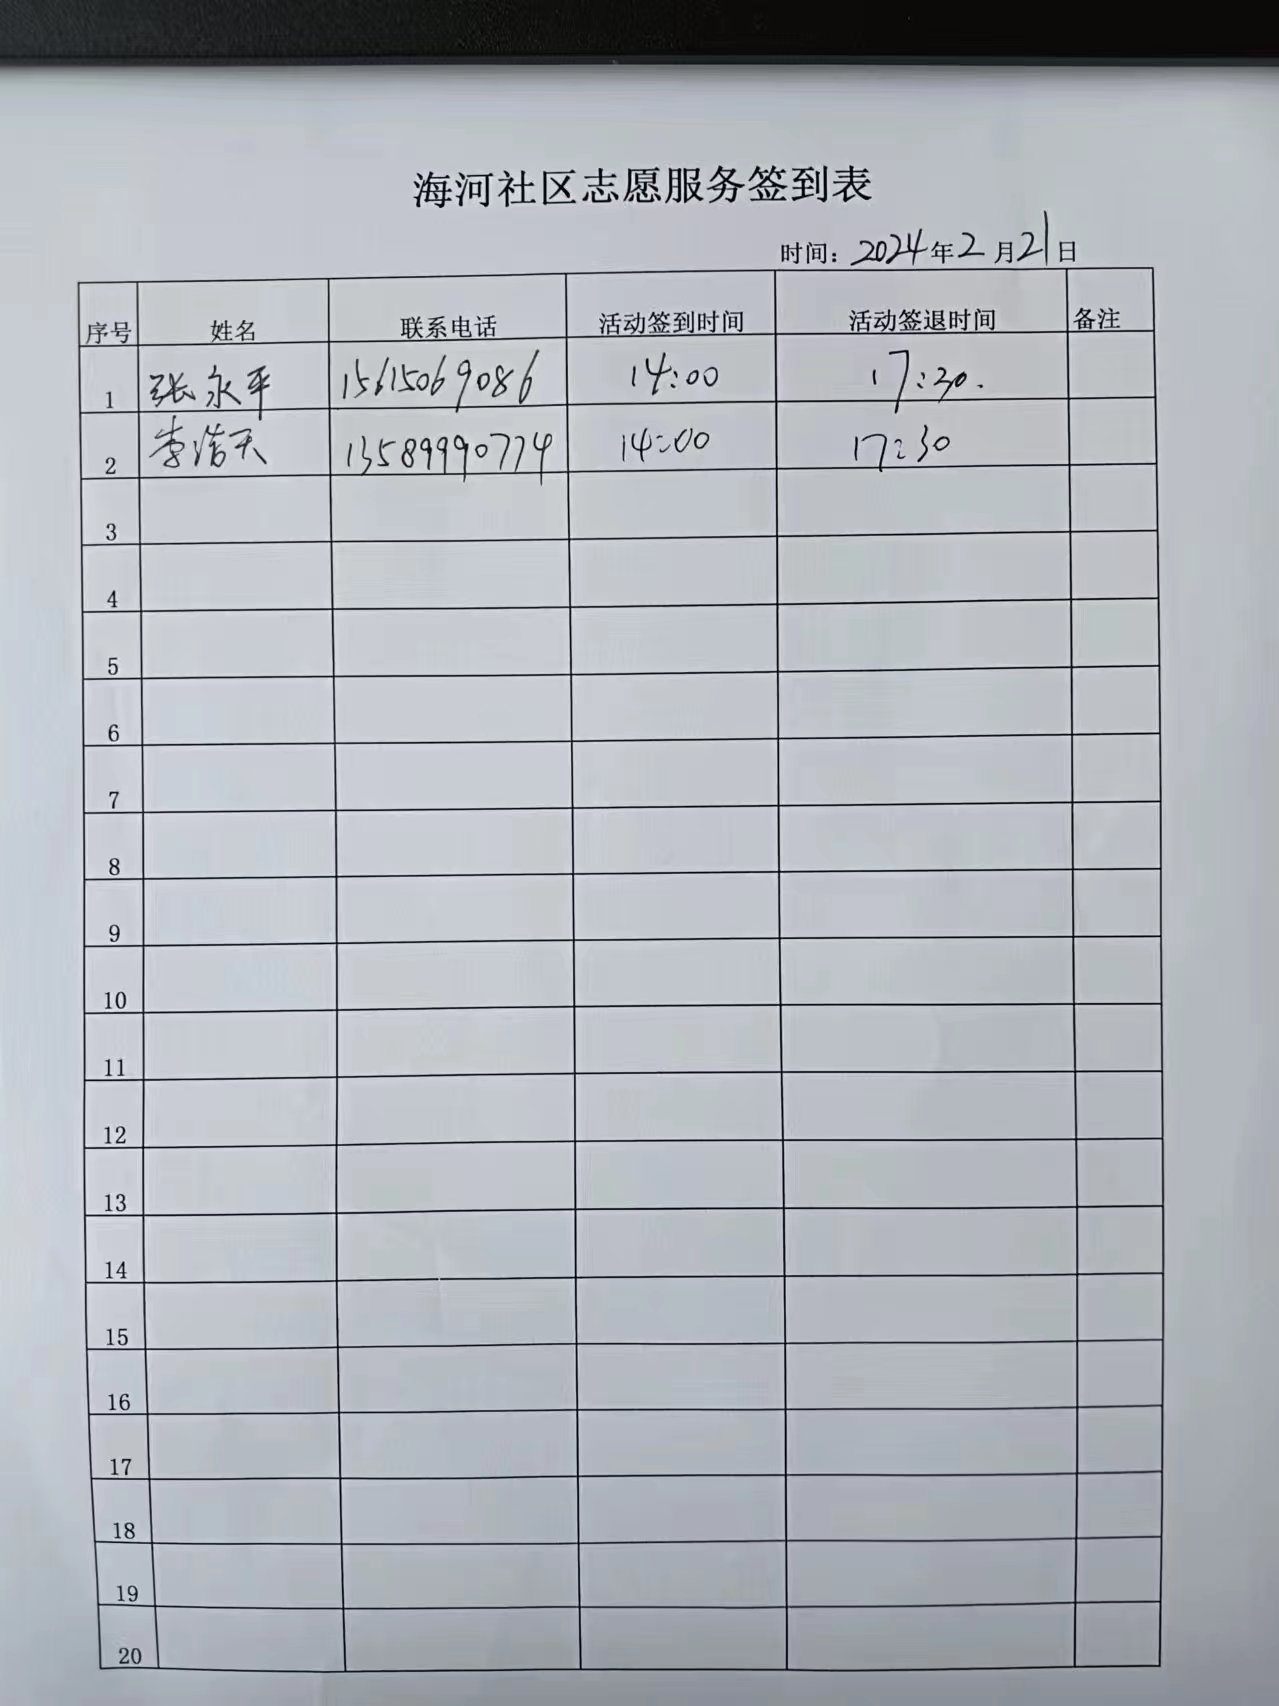 海河社区志愿服务签到表
时间：2024年2月21日
序号 姓名 联系电话 活动签到时间 活动签退时间 备注
1 张永平 15615069086 14:00 17:30.
2 李浩天 13589990774 14:00 17:30
3
4
5
6
7
8
9
10
11
12
13
14
15
16
17
18
19
20